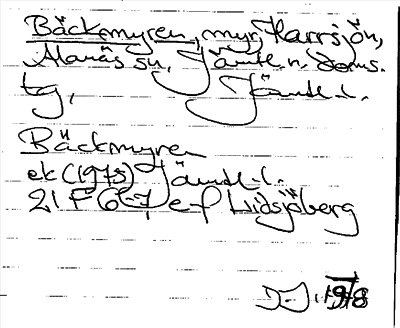 Bäckmyren, myr, Harrsjön,
Alanäs sn, Jämtl. n. doms.
tg, Jämtl. l.
Bäckmyren
ek (1975) Jämtl. l.
21 F 6-7 e-f Lidsjöberg
1978